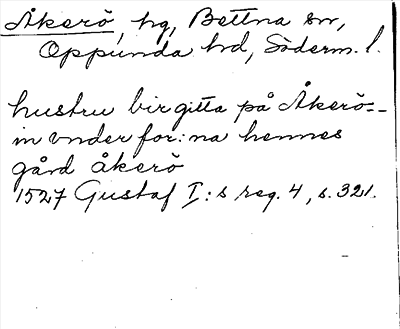 Åkerö, hg, Bettna sn,
Oppunda hd, Söderm. l.
hustru birgitta på Åkerö--
in vnder for:na hennes
gård åkerö
1527 Gustaf I:s reg. 4, s. 321.